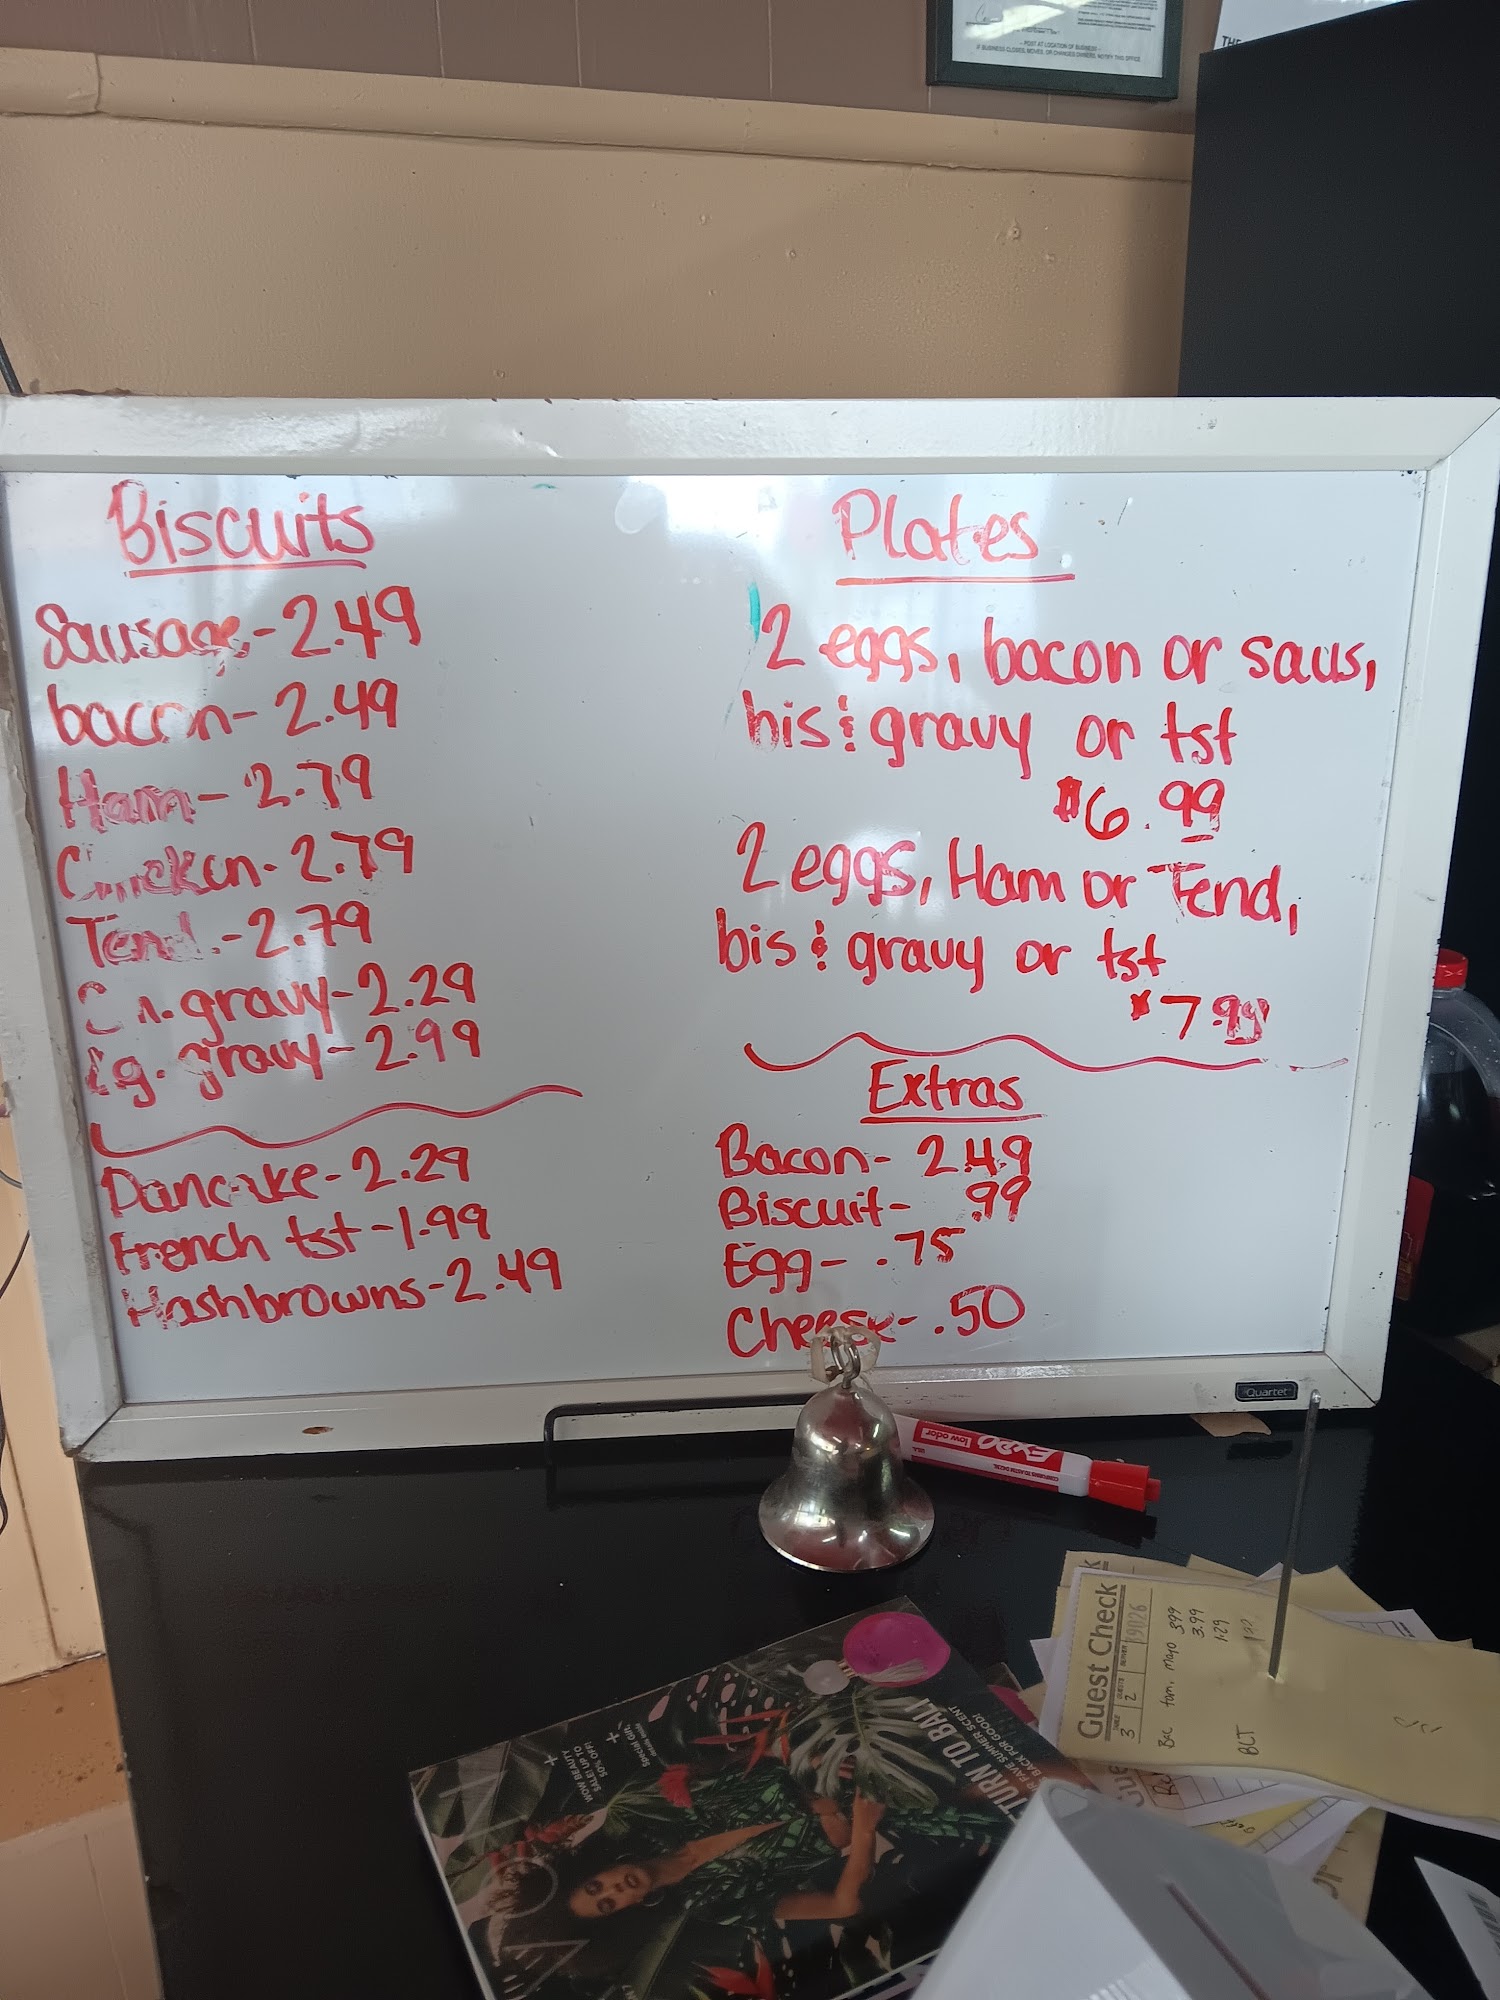 - POST AT LOCATION OF BUSINESS -
IF BUSINESS CLOSES, MOVES, OR CHANGES OWNERS, NOTIFY THIS OFFICE
Biscuits
Sausage - 2.49
bacon - 2.49
Ham - 2.79
Chicken - 2.79
Tend. - 2.79
gravy - 2.29
gravy - 2.99
Pancake - 2.29
French tst - 1.99
Hashbrowns - 2.49
Plates
2 eggs, bacon or saus,
bis & gravy or tst
$6.99
2 eggs, Ham or Tend,
bis & gravy or tst
$7.99
Extras
Bacon - 2.49
Biscuit - .99
Egg - .75
Cheese - .50
Quartet
EXPO
low odor
Guest Check
TABLE GUESTS SERVER
3 2
tom, mayo 3.99
3.99
1.29
BLT
WOW BEAUTY
SALE! UP TO
50% OFF!
TURN TO BALI
SUMMER SCENT
BACK FOR GOOD!